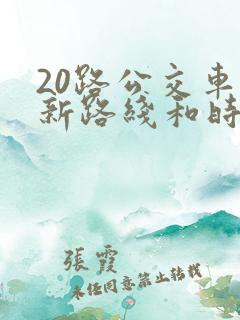 20路公交車
新路綫和時
張霞
未任同意禁止转载